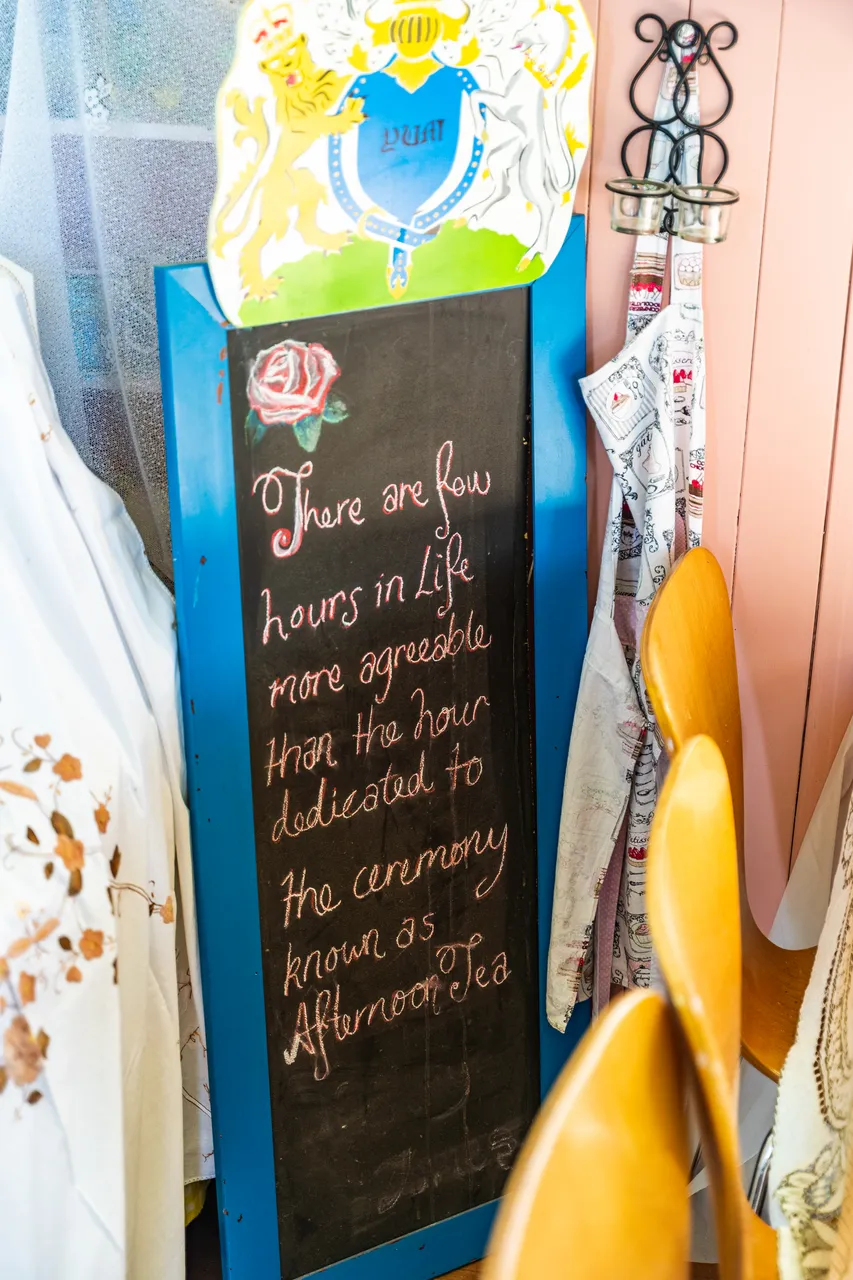 There are few
hours in Life
more agreeable
than the hour
dedicated to
the ceremony
known as
Afternoon Tea